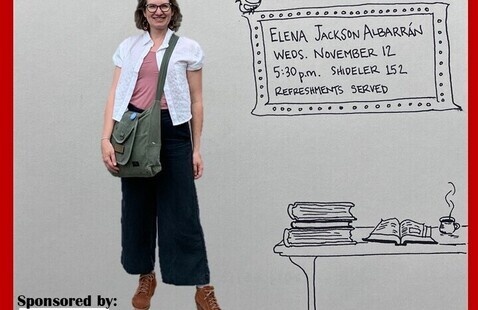 ELENA JACKSON ALBARRÁN
WEDS. NOVEMBER 12
5:30 p.m. SHIDELER 152
REFRESHMENTS SERVED
Sponsored by: